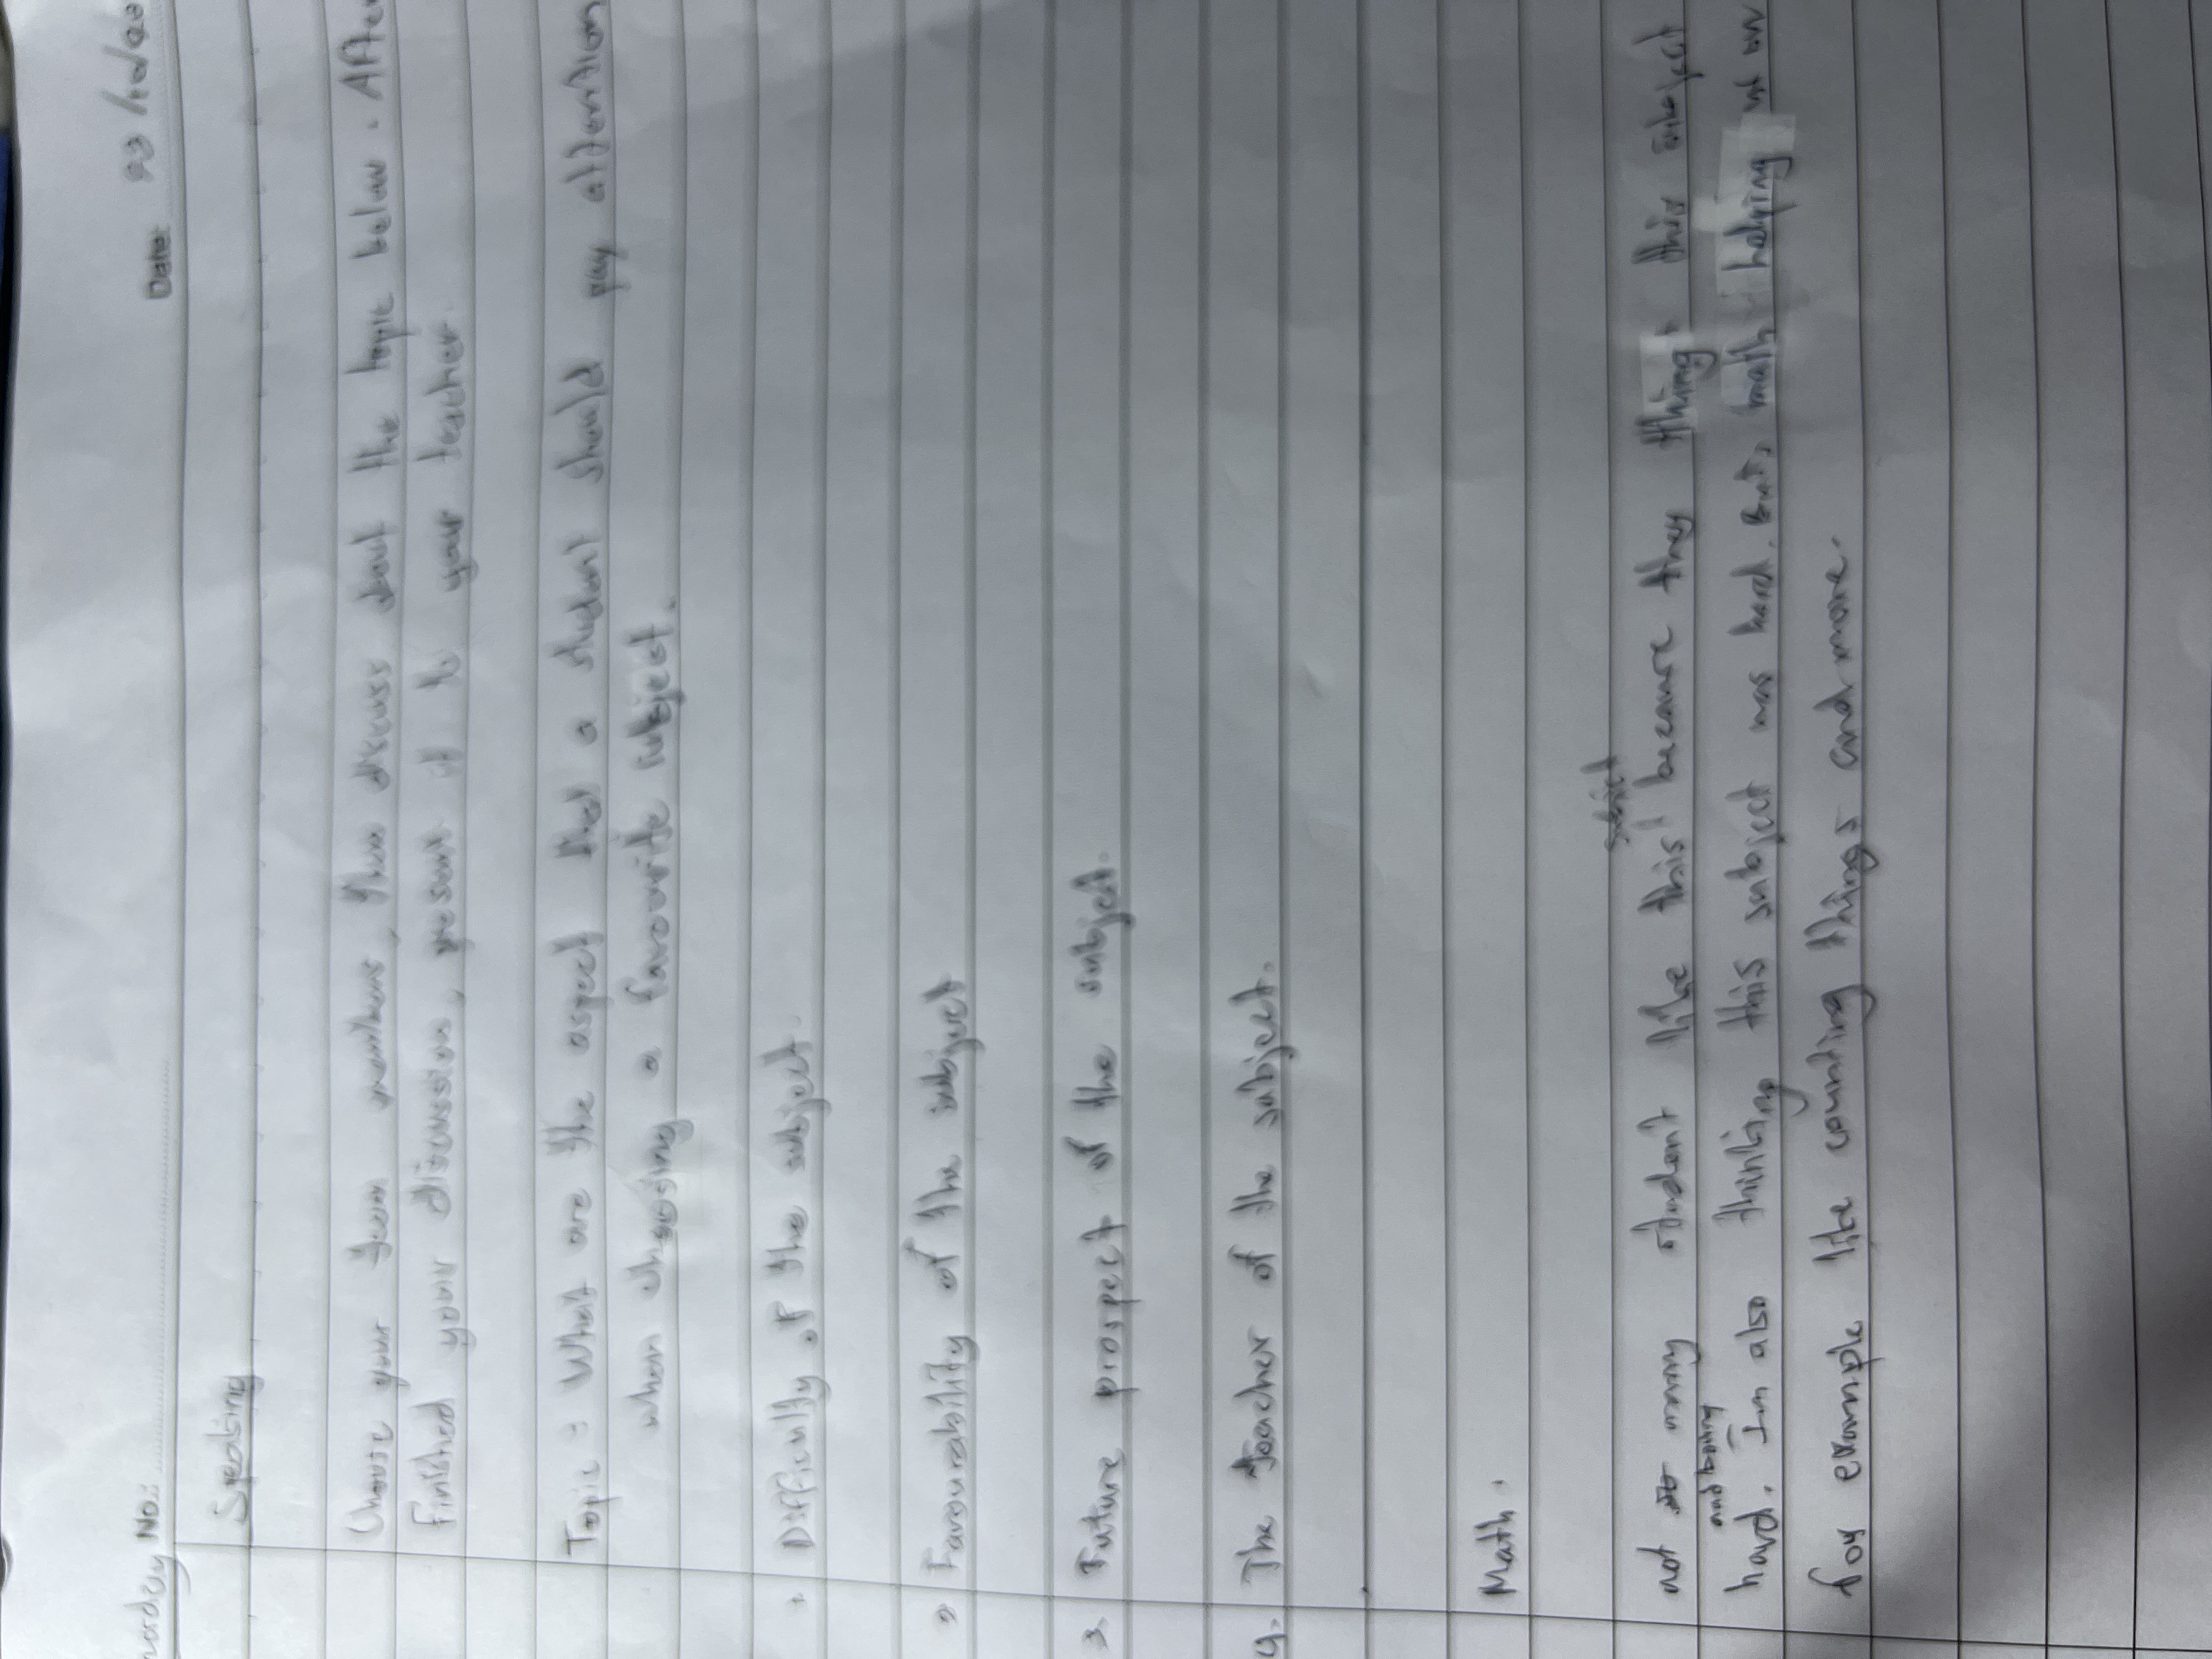 No.:
Date: 23/10/20
Speaking
Choose your team members, then discuss about the topic below. After
finished your discussion, present it to your teacher.
Topic : What are the aspect that a student should pay attention
when choosing a favourite subject.
1 Difficulty of the subject.
2 Favourability of the subject
3. Future prospect of the subject.
4. The teacher of the subject.
Math.
subject
not so many student like this because they thing this subject
and boring
hard. Im also thinking this subject was hard. But, math helping
for example like counting things and more.